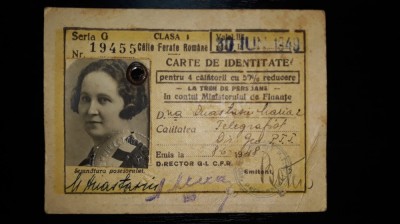 Seria G
Nr. 19455
CLASA I
Căile Ferate Române
30 JUN. 1940
CARTE DE IDENTITATE
pentru 4 călătorii cu 50% reducere
LA TREN DE PERSOANE
în contul Ministerului de Finanțe
D.na Anastasiu Maria
Calitatea Telegrafist
Dir. Gen. P.T.T.
Emis la
DIRECTOR G-L C.F.R.
Emitent,
Semnătura posesorului,
M Anastasiu